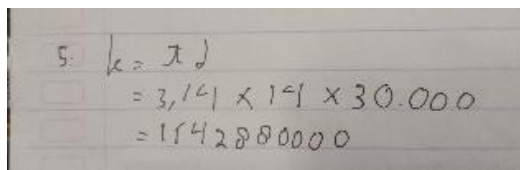 5. k = π d
= 3,14 × 14 × 30.000
= 1542880000